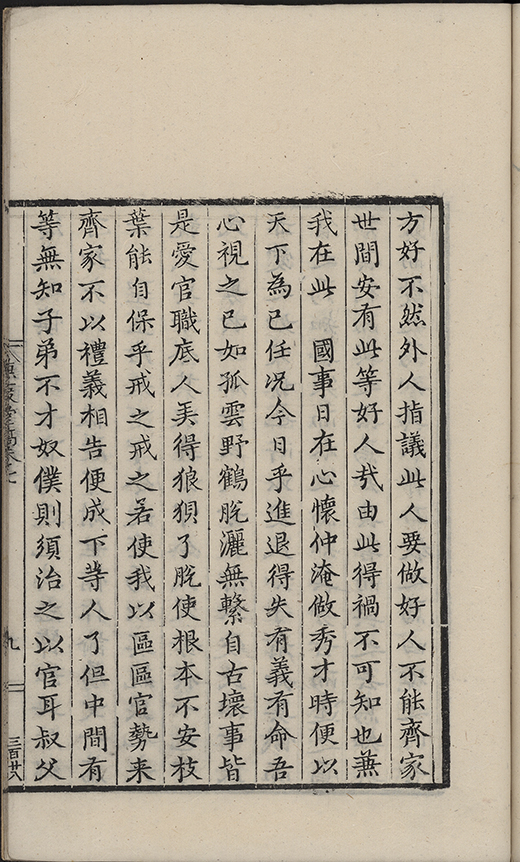 方好不然外人指議此人要做好人不能齊家
世間安有此等好人㦲由此得禍不可知也蕪
我在此 國事日在心懷仲淹做秀才時便以
天下為己任况今日乎進退得失有義有命吾
心視之已如孤雲野鶴脫灑無繫自古壞事皆
是愛官職底人弄得狼狽了脫使根本不安枝
葉能自保乎戒之戒之若使我以區區官勢来
齊家不以禮義相告便成下等人了但中間有
等無知子弟不才奴僕則須治之以官耳叔父
九
三百廿八